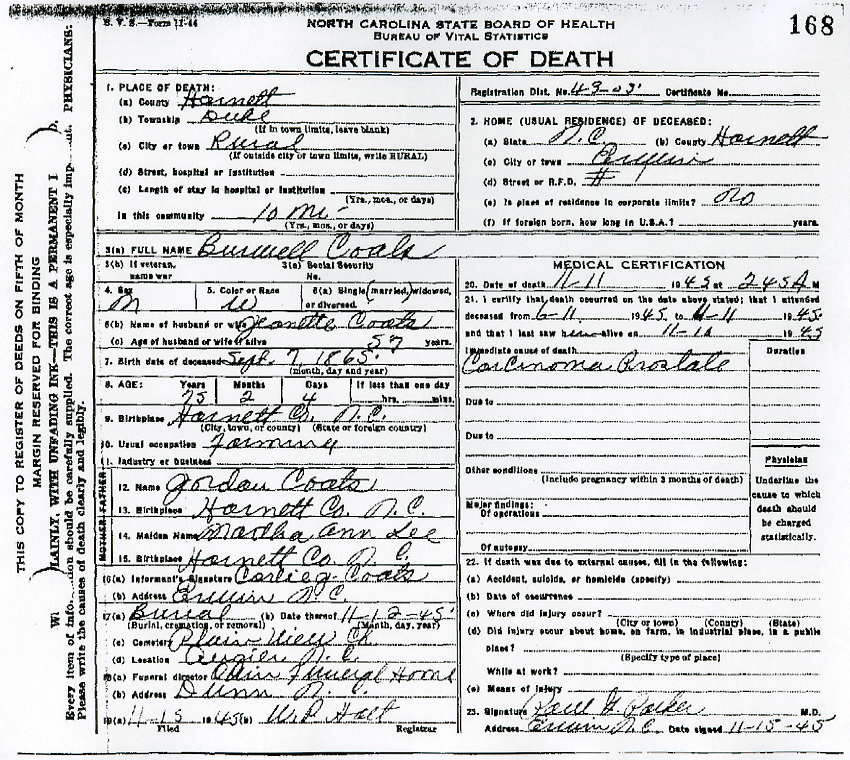 S. V. S.—Form 11-44
NORTH CAROLINA STATE BOARD OF HEALTH
BUREAU OF VITAL STATISTICS
168
CERTIFICATE OF DEATH
THIS COPY TO REGISTER OF DEEDS ON FIFTH OF MONTH
MARGIN RESERVED FOR BINDING
LAINLY, WITH UNFADING INK—THIS IS A PERMANENT
Every item of should be carefully supplied. The correct age is especially PHYSICIANS:
Please write the causes of death clearly and legibly.
1. PLACE OF DEATH:
(a) County Harnett
(b) Township Duke
(If in town limits, leave blank)
(c) City or town Rural
(If outside city or town limits, write RURAL)
(d) Street, hospital or institution
(e) Length of stay in hospital or institution
(Yrs., mos., or days)
In this community 10 mi-
(Yrs., mos., or days)
Registration Dist. No. 43-03 Certificate No.
2. HOME (USUAL RESIDENCE) OF DECEASED:
(a) State N.C. (b) County Harnett
(c) City or town
(d) Street or R.F.D. #
(e) Is place of residence in corporate limits? No
(f) If foreign born, how long in U.S.A.? years.
3(a) FULL NAME Burwell Coats
3(b) If veteran, name war
3(a) Social Security No.
4. Sex M
5. Color or Race W
6(a) Single, married, widowed, or divorced.
6(b) Name of husband or wife Jeanette Coats
(c) Age of husband or wife if alive 57 years.
7. Birth date of deceased Sept. 7, 1865
(month, day and year)
8. AGE: Years Months Days If less than one day
75 2 4 hrs. mins.
9. Birthplace Harnett Co. N.C.
(City, town, or county) (State or foreign country)
10. Usual occupation Farming
11. Industry or business
FATHER
12. Name Gordan Coats
13. Birthplace Harnett Co. N.C.
MOTHER
14. Maiden Name Martha Ann Lee
15. Birthplace Harnett Co. N.C.
16(a) Informant's Signature Coats
(b) Address Erwin N.C.
17(a) Burial (b) Date thereof 11-12-45
(Burial, cremation, or removal) (Month, day, year)
(c) Cemetery Plain View Ch
(d) Location Angier N.C.
18(a) Funeral director Funeral Home
(b) Address Dunn N.C.
19(a) 11-15 1945 (b) W.P. Holt
Filed Registrar
MEDICAL CERTIFICATION
20. Date of death 11-11 1945 at 245A M
21. I certify that death occurred on the date above stated; that I attended
deceased from 6-11 1945 to 11-11 1945
and that I last saw him alive on 11-10 1945
Immediate cause of death Duration
Carcinoma Prostate
Due to
Due to
Other conditions
(Include pregnancy within 3 months of death)
Major findings:
Of operations
Of autopsy
Physician
Underline the
cause to which
death should
be charged
statistically.
22. If death was due to external causes, fill in the following:
(a) Accident, suicide, or homicide (specify)
(b) Date of occurrence
(c) Where did injury occur?
(City or town) (County) (State)
(d) Did injury occur about home, on farm, in industrial place, in a public
place?
(Specify type of place)
While at work?
(e) Means of injury
23. Signature Paul G. Parker M.D.
Address Erwin N.C. Date signed 11-15-45